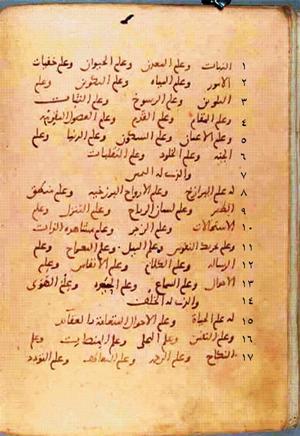 ١ النبات وعلم المعدن وعلم الحيوان وعلم خفيات
٢ الامور وعلم المياه وعلم التكوين وعلم
٣ التلوين وعلم الرسوخ وعلم الثبات
٤ وعلم المقام وعلم القدم وعلم الفصول المقومة
٥ وعلم الاعيان وعلم السكون وعلم الدنيا وعلم
٦ الجنة وعلم الخلود وعلم التقلبات
٧ والذي له اليمين
٨ له علم البرازخ وعلم الارواح البرزخية وعلم منطق
٩ الطير وعلم لسان الرياح وعلم التنزل وعلم
١٠ الاستحالات وعلم الزجر وعلم مشاهدة الذات
١١ وعلم تحريك النفوس وعلم الميل وعلم المعراج وعلم
١٢ الرسالة وعلم الكلام وعلم الانفاس وعلم
١٣ الاحوال وعلم السماع وعلم الحيرة وعلم الهوى
١٤ والذي له الخلف
١٥ له علم الحياة وعلم الاحوال المتعلقة بالعقائد
١٦ وعلم النفس وعلم التجلي وعلم المنصات وعلم
١٧ النكاح وعلم الرحم وعلم التعاطف وعلم التودد